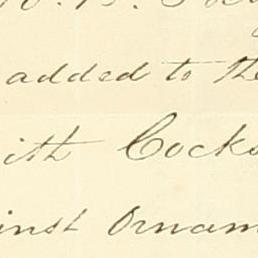 added to the
ith Cocks
inst Ornam